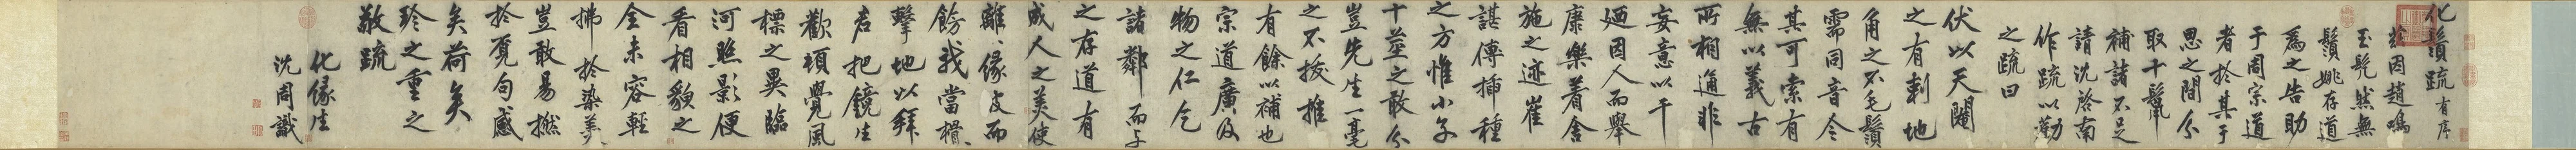 化鬚疏有序
兹因趙鳴
玉髡然無
鬚姚存道
為之告助
于周宗道
者於其于
思之間分
取十鬣
補諸不足
請沈啓南
作疏以勸
之疏曰
伏以天閹
之有刺地
角之不毛鬚
需同音今
其可索有
無以義古
所相通非
妄意以干
迺因人而舉
康樂着舍
施之迹崔
諶傳插種
之方惟小子
十莖之敢分
豈先生一毫
之不拔推
有餘以補也
宗道廣及
物之仁乞
諸鄰而于
之存道有
成人之美使
離離緣坡而
飾我當榾榾
擊地以拜
君把鏡生
歡頓覺風
標之異臨
河照影便
看相貌之
全未容輕
拂於染羹
豈敢易撚
於覓句感
矣荷矣
珍之重之
敬疏
化緣生
沈周識